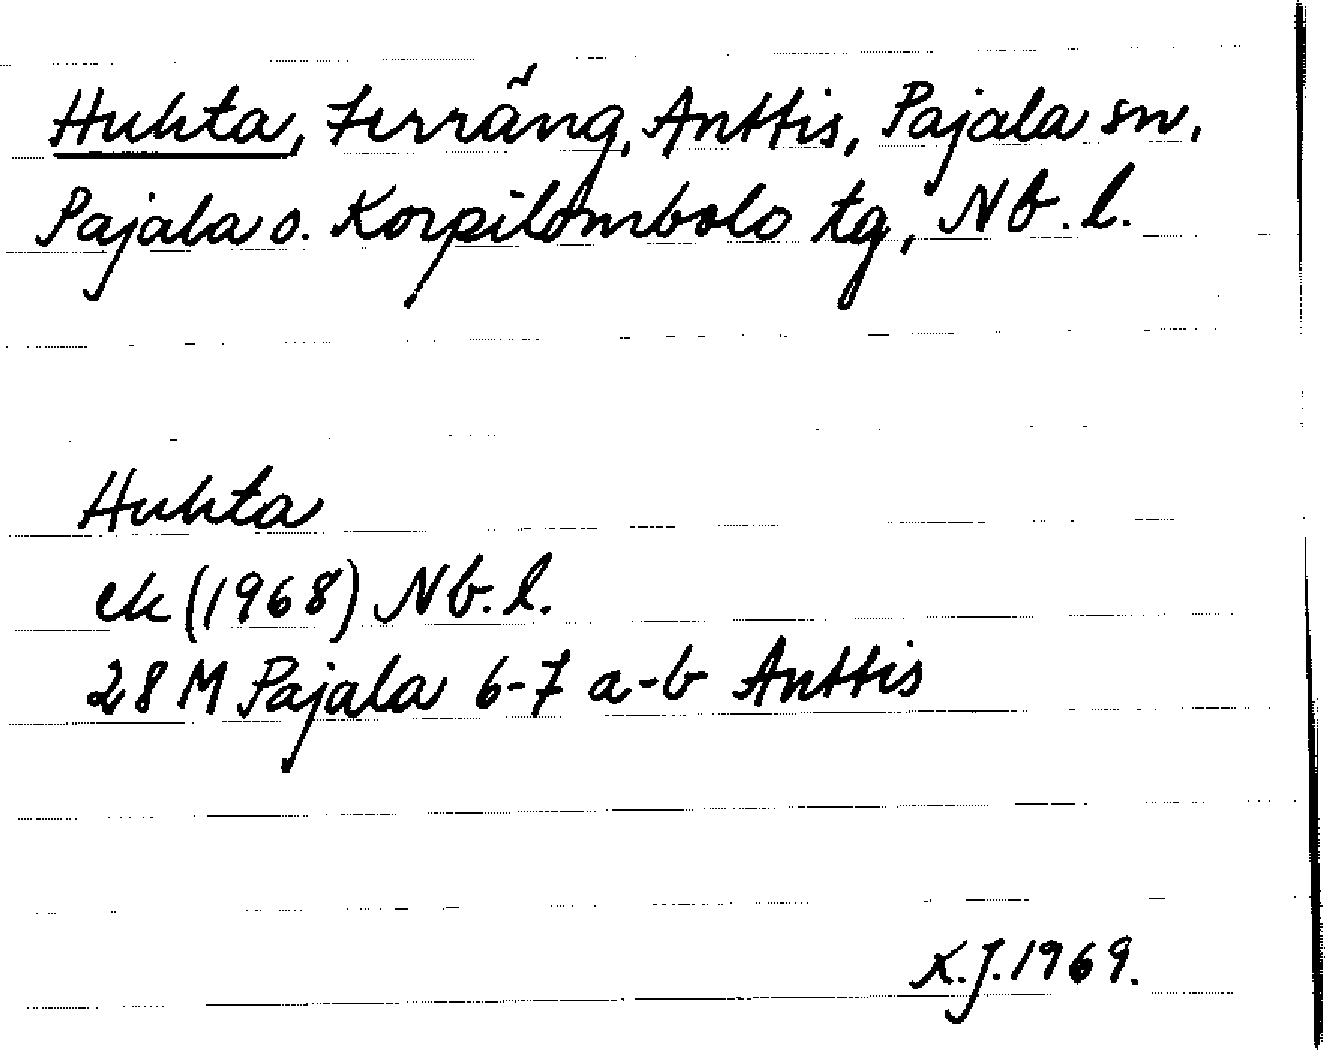 Huhta, Terräng, Anttis, Pajala sn.
Pajala o. Korpilombolo tg, Nb. l.
Huhta
ek (1968) Nb. l.
28 M Pajala 6-7 a-b Anttis
K.J. 1969.